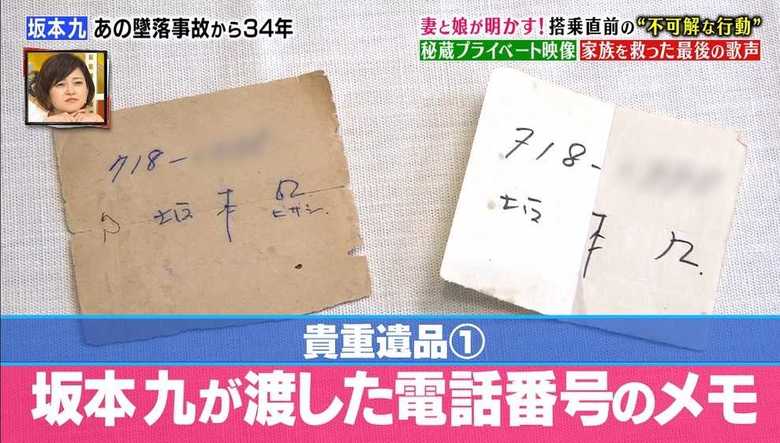 坂本九 あの墜落事故から34年
妻と娘が明かす!搭乗直前の“不可解な行動”
秘蔵プライベート映像 家族を救った最後の歌声
718-
坂本九
ヒサシ.
718-
坂本九.
貴重遺品①
坂本九が渡した電話番号のメモ